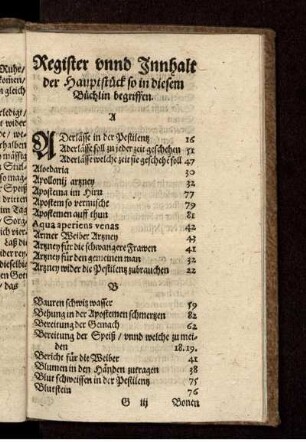 Register vnnd Innhalt
der Hauptstück so in diesem
Büchlin begriffen.
A
ADerlässe in der Pestilentz 16
Aderlässe soll zu jeder zeit geschehen 51
Aderlässe welche zeit sie geschehē soll 47
Aloedaria 30
Apollonij artzney 32
Apostema im Hirn 77
Apostem so vermischt 79
Apostemen auff thun 81
Aqua aperiens venas 42
Armer Weiber Artzney 43
Artzney für die schwangere Frawen 41
Artzney für den gemeinen man 32
Artzney wider die Pestilentz zubrauchen 22
B
Bauren schwitzwasser 59
Behung in der Apostemen schmertzen 82
Bereitung der Gemach 62
Bereitung der Speiß / vnnd welche zu mei-
den 18.19.
Bericht für die Weiber 41
Blumen in den Händen zutragen 38
Blut schweissen in der Pestilentz 75
Blutstein 76
G iij Bonen
Ruhe/
gleich
wider
im Tag
das